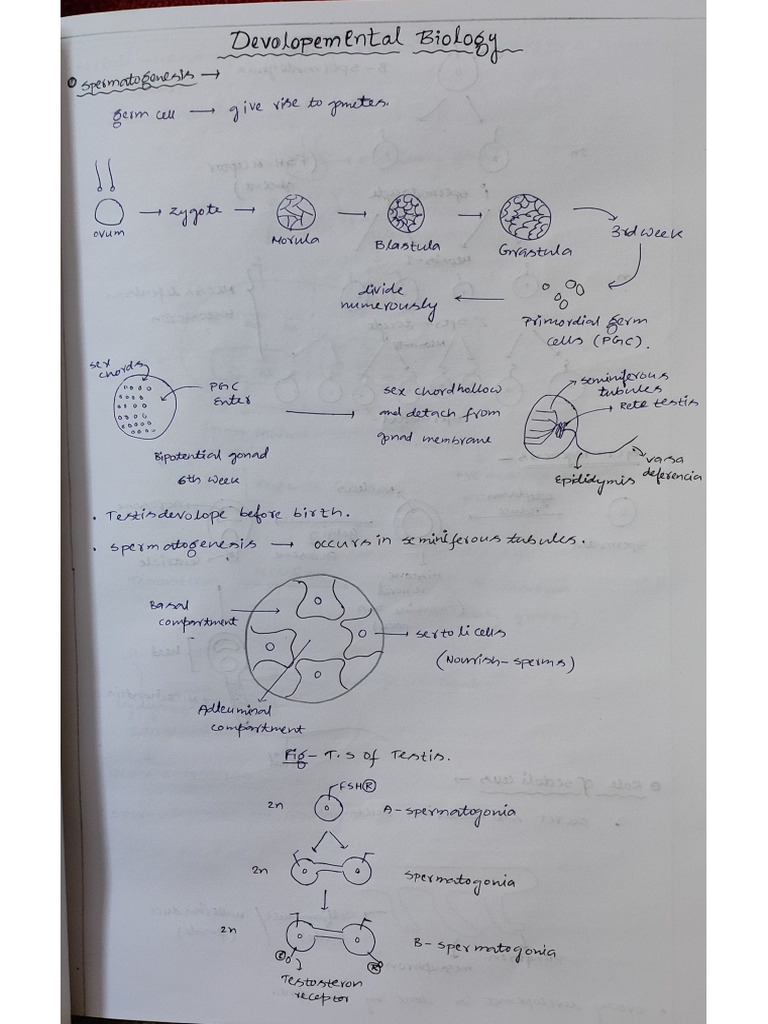 Devolopemental Biology
① Spermatogenesis →
germ cell → give rise to gmetes.
ovum → zygote → Morula → Blastula → Grastula
3rd week
Primordial germ
cells (PGC).
divide
numerously
sex
chords
PGC
Enter
Bipotential gonad
6th week
sex chord hollow
and detach from
gonad membrane
seminiferous
tubules
Rete testis
Epididymis
vasa
deferencia
. Testis devolope before birth.
. spermatogenesis → occurs in seminiferous tubules.
Basal
compartment
sertoli cells
(Nourish-sperms)
Adleuminal
compartment
Fig- T.S of Testis.
FSH R
2n A-spermatogonia
2n spermatogonia
2n B-spermatogonia
R
Testosteron
receptor